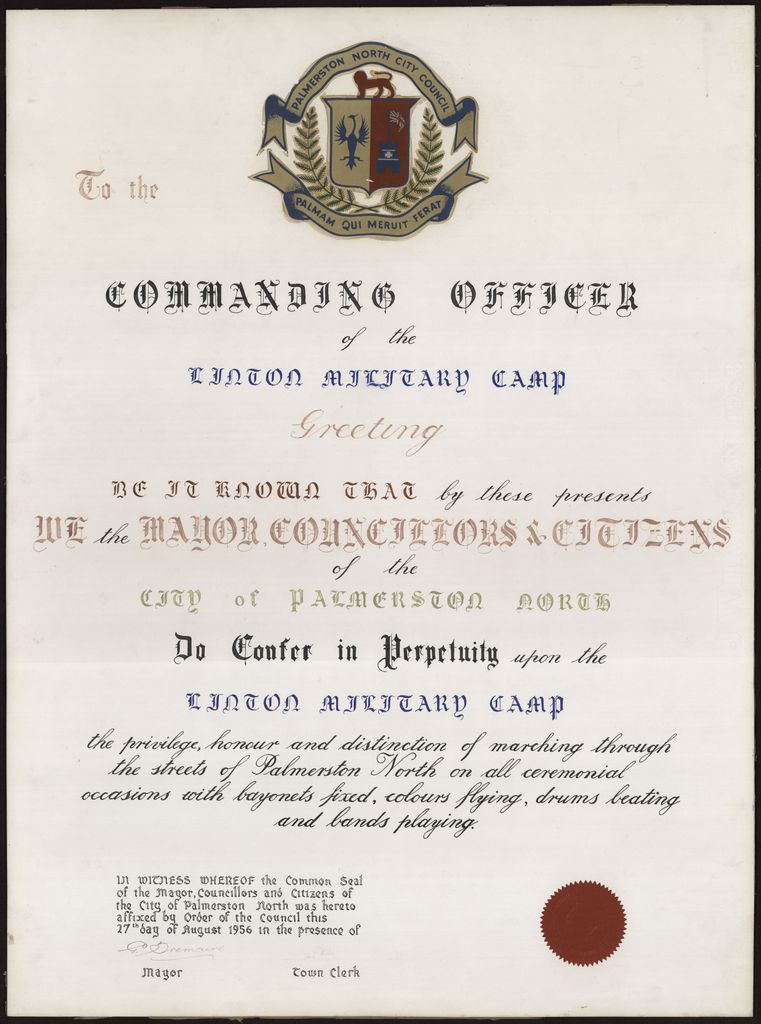 PALMERSTON NORTH CITY COUNCIL
PALMAM QUI MERUIT FERAT
To the
COMMANDING OFFICER
of the
LINTON MILITARY CAMP
Greeting
BE IT KNOWN THAT by these presents
WE the MAYOR, COUNCILLORS & CITIZENS
of the
CITY of PALMERSTON NORTH
Do Confer in Perpetuity upon the
LINTON MILITARY CAMP
the privilege, honour and distinction of marching through
the streets of Palmerston North on all ceremonial
occasions with bayonets fixed, colours flying, drums beating
and bands playing.
IN WITNESS WHEREOF the Common Seal
of the Mayor, Councillors and Citizens of
the City of Palmerston North was hereto
affixed by Order of the Council this
27th day of August 1956 in the presence of
Mayor Town Clerk